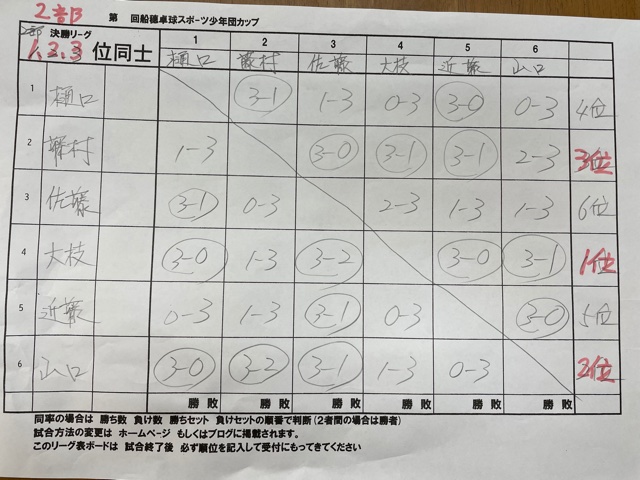 2部 第 回船穂卓球スポーツ少年団カップ
2部 決勝リーグ
1.2.3 位同士
1 2 3 4 5 6
樋口 藤村 佐藤 大枝 近藤 山口
1 樋口 3-1 1-3 0-3 3-0 0-3 4位
2 藤村 1-3 3-0 3-1 3-1 2-3 3位
3 佐藤 3-1 0-3 2-3 1-3 1-3 6位
4 大枝 3-0 1-3 3-2 3-0 3-1 1位
5 近藤 0-3 1-3 3-1 0-3 3-0 5位
6 山口 3-0 3-2 3-1 1-3 0-3 2位
勝 敗 勝 敗 勝 敗 勝 敗 勝 敗 勝 敗
同率の場合は 勝ち数 負け数 勝ちセット 負けセットの順番で判断(2者間の場合は勝者)
試合方法の変更は ホームページ もしくはブログに掲載されます。
このリーグ表ボードは 試合終了後 必ず順位を記入して受付にもってきてください